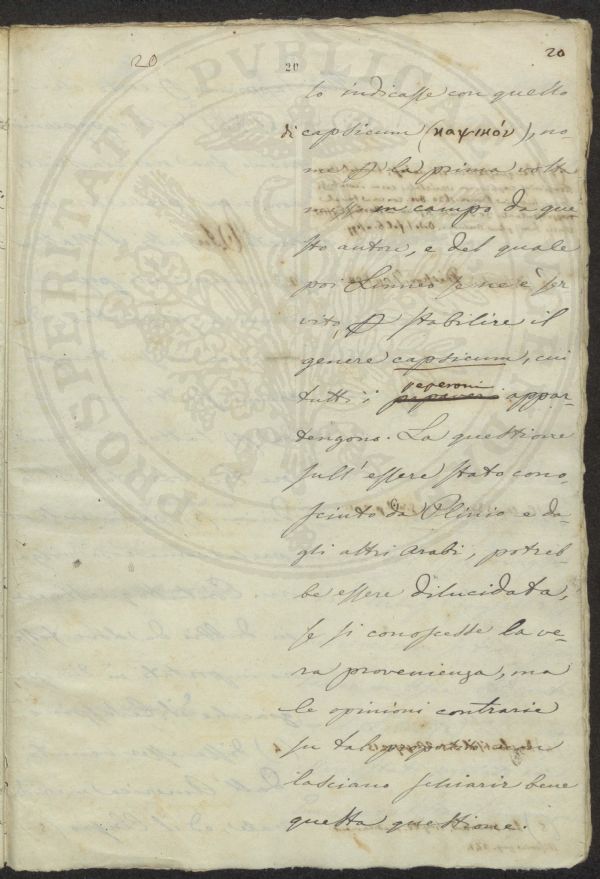 20
20
20
lo indicasse con questo
di capsicum (καψικόν), no-
me p la prima volta
messo in campo da que
sto autore, e del quale
poi Linneo se ne è ser
vito, p stabilire il
genere capsicum, cui
peperoni
tutti i papaveri appar-
tengono. La questione
sull' essere stato cono-
sciuto da Plinio e da-
gli altri Arabi, potreb-
be essere dilucidata,
se si conoscesse la ve-
ra provenienza, ma
le opinioni contrarie
su tal proposito non
lasciano schiarir bene
questa questione.
PROSPERITATI PVBLICAE